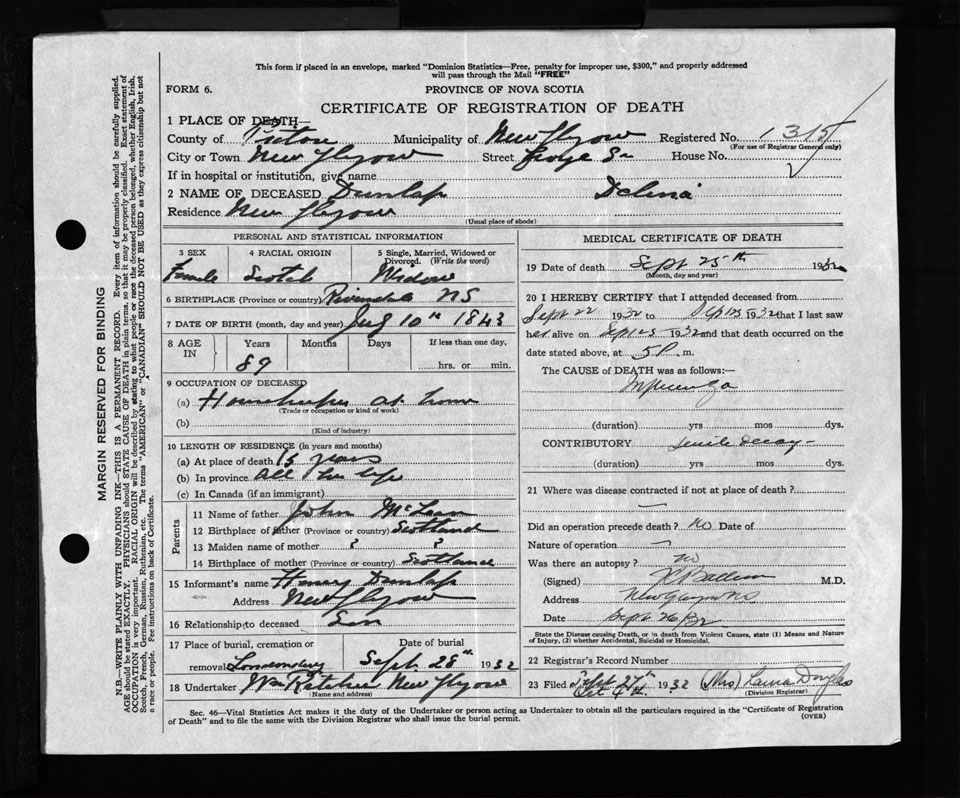 This form if placed in an envelope, marked "Dominion Statistics—Free, penalty for improper use, $300," and properly addressed
will pass through the Mail "FREE"
FORM 6.
PROVINCE OF NOVA SCOTIA
CERTIFICATE OF REGISTRATION OF DEATH
1 PLACE OF DEATH—
County of Pictou Municipality of New Glasgow Registered No. 1315
(For use of Registrar General only)
City or Town New Glasgow Street George St House No.
If in hospital or institution, give name
2 NAME OF DECEASED Dunlap Delina
Residence New Glasgow
(Usual place of abode)
PERSONAL AND STATISTICAL INFORMATION
3 SEX 4 RACIAL ORIGIN 5 Single, Married, Widowed or
Divorced. (Write the word)
Female Scotch Widow
6 BIRTHPLACE (Province or country) Riversdale NS
7 DATE OF BIRTH (month, day and year) 10th 1843
8 AGE IN Years Months Days If less than one day,
89 hrs. or min.
9 OCCUPATION OF DECEASED
(a) Housekeeper at home
(Trade or occupation or kind of work)
(b)
(Kind of industry)
10 LENGTH OF RESIDENCE (in years and months)
(a) At place of death 15 years
(b) In province all her life
(c) In Canada (if an immigrant)
Parents
11 Name of father John McLean
12 Birthplace of father (Province or country) Scotland
13 Maiden name of mother ? ?
14 Birthplace of mother (Province or country) Scotland
15 Informant's name Henry Dunlap
Address New Glasgow
16 Relationship to deceased Son
17 Place of burial, cremation or removal Londonderry Date of burial Sept. 28th 1932
18 Undertaker New Glasgow
(Name and address)
MEDICAL CERTIFICATE OF DEATH
19 Date of death Sept 25th 1932
(Month, day and year)
20 I HEREBY CERTIFY that I attended deceased from
Sept 22 1932 to Sept 25 1932 that I last saw
her alive on Sept 25 1932 and that death occurred on
date stated above, at 5 P. m.
The CAUSE of DEATH was as follows:
Influenza
(duration) yrs mos dys.
CONTRIBUTORY senile decay
(duration) yrs mos dys.
21 Where was disease contracted if not at place of death?
—
Did an operation precede death? No Date of
Nature of operation —
Was there an autopsy? no
(Signed) M.D.
Address New Glasgow NS
Date Sept 26 32
State the Disease causing Death, or in death from Violent Causes, state (1) Means and Nature
of Injury, (2) whether Accidental, Suicidal or Homicidal.
22 Registrar's Record Number
23 Filed Sept 27th Oct 4th 1932 (Mrs) Laura Douglas
(Division Registrar)
Sec. 46—Vital Statistics Act makes it the duty of the Undertaker or person acting as Undertaker to obtain all the particulars required in the "Certificate of Registration
of Death" and to file the same with the Division Registrar who shall issue the burial permit.
(OVER)
MARGIN RESERVED FOR BINDING
N.B.—WRITE PLAINLY WITH UNFADING INK—THIS IS A PERMANENT RECORD. Every item of information should be carefully supplied.
AGE should be stated EXACTLY. PHYSICIANS should STATE CAUSE OF DEATH in plain terms, so that it may be properly classified. Exact statement of
OCCUPATION is very important. RACIAL ORIGIN will be described by stating to what people or race the deceased person belonged, whether English, Irish,
Scotch, French, German, Russian, Ruthenian, etc. The terms "AMERICAN" or "CANADIAN" SHOULD NOT BE USED as they express citizenship but not
a race or people. Fee instructions on back of Certificate.